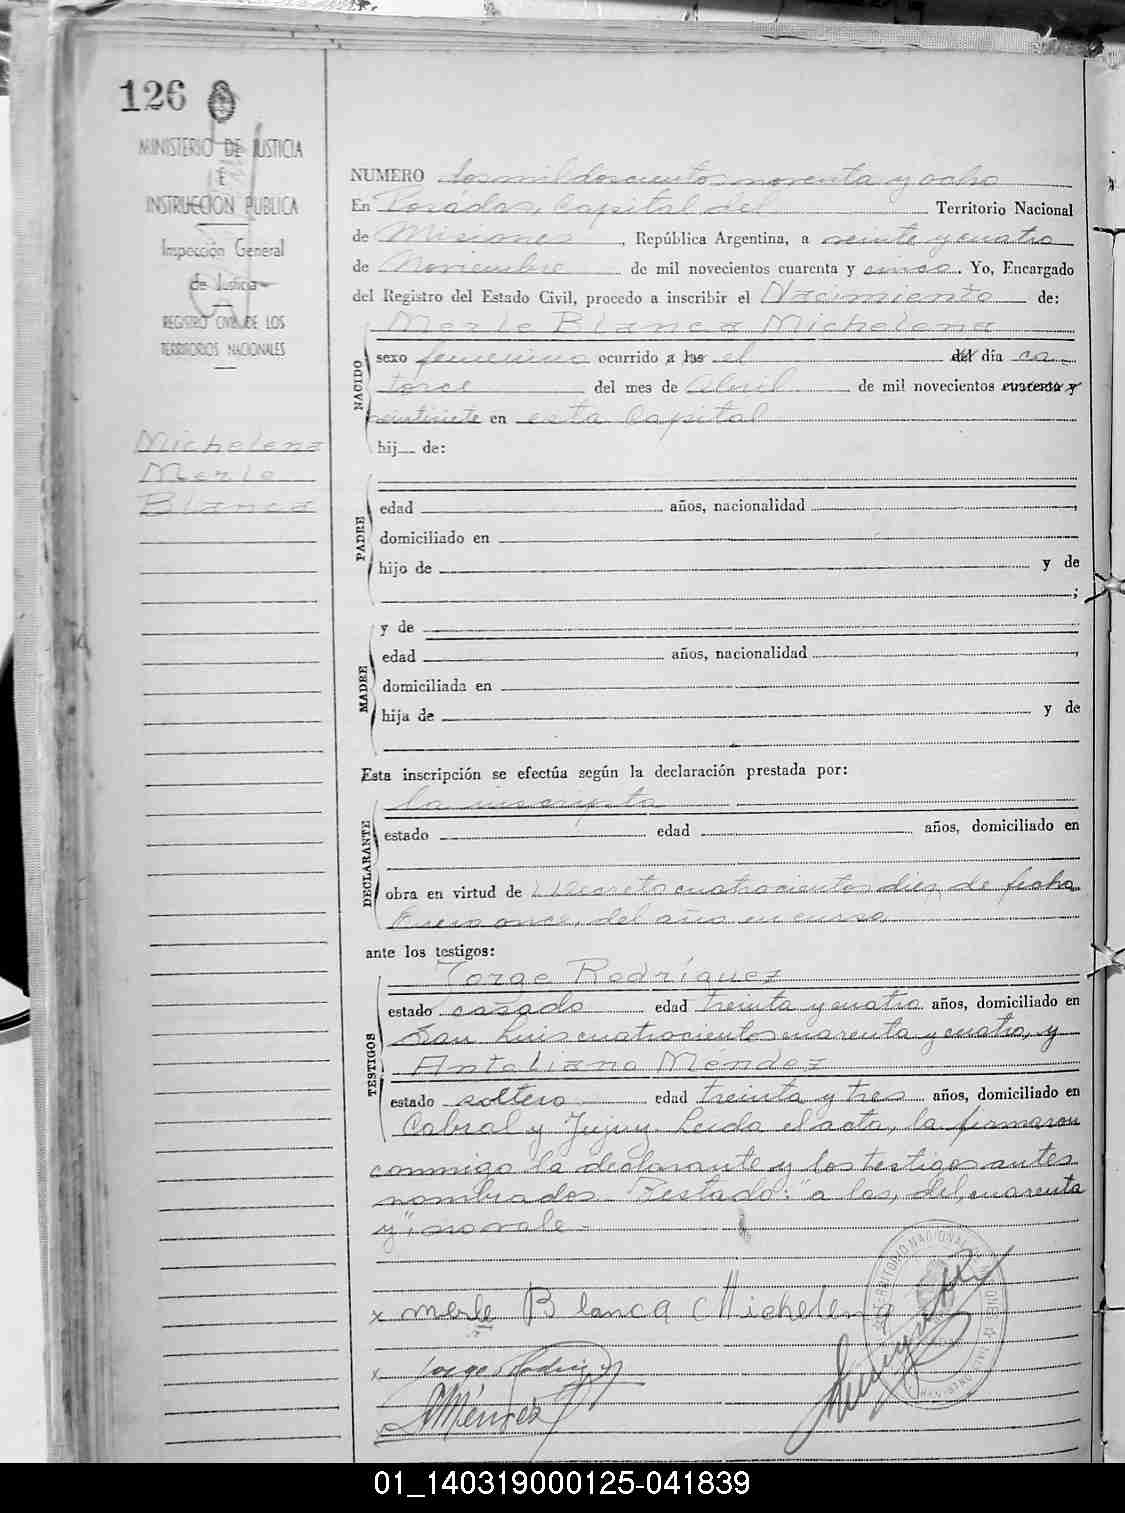 126
MINISTERIO DE JUSTICIA
E
INSTRUCCION PUBLICA
Inspección General
de Justicia
REGISTRO CIVIL DE LOS
TERRITORIOS NACIONALES
Michelena
Merle
Blanca
NUMERO dosmil doscientos noventa y ocho
En Posadas, Capital del Territorio Nacional
de Misiones, República Argentina, a veinte y cuatro
de Noviembre de mil novecientos cuarenta y cinco. Yo, Encargado
del Registro del Estado Civil, procedo a inscribir el Nacimiento de:
Merle Blanca Michelena
NACIDO
sexo femenino ocurrido a las el del día ca-
torce del mes de Abril de mil novecientos cuarenta y
veintisiete en esta Capital
hij de:
PADRE
edad años, nacionalidad ,
domiciliado en
hijo de y de
;
MADRE
y de
edad años, nacionalidad ,
domiciliada en
hija de y de
Esta inscripción se efectúa según la declaración prestada por:
DECLARANTE
la inscripta
estado edad años, domiciliado en
obra en virtud de Decreto cuatrocientos diez de fecha
Enero once, del año en curso
ante los testigos:
TESTIGOS
Jorge Rodríguez
estado casado edad treinta y cuatro años, domiciliado en
San Luis cuatrocientos cuarenta y cuatro, y
Antoliano Méndez
estado soltero edad treinta y tres años, domiciliado en
Cabral y Jujuy. Leída el acta, la firmaron
conmigo la declarante y los testigos antes
nombrados. Testado: "a las, del, cuarenta
y", no vale.-
x Merle Blanca Michelena
x Jorge Rodríguez
x AMéndez
TERRITORIO NACIONAL
01_140319000125-041839